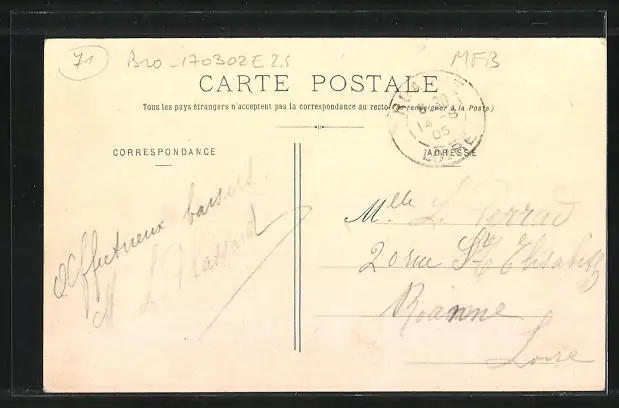 71 Bro-170302E25 MFB
CARTE POSTALE
Tous les pays étrangers n'acceptent pas la correspondance au recto (se renseigner à la Poste)
CORRESPONDANCE
ADRESSE
14 - 5
05
LOIRE
Affectueux baisers.
M L
Mlle L. Perrad
20 rue Ste Elisabeth
Roanne
Loire